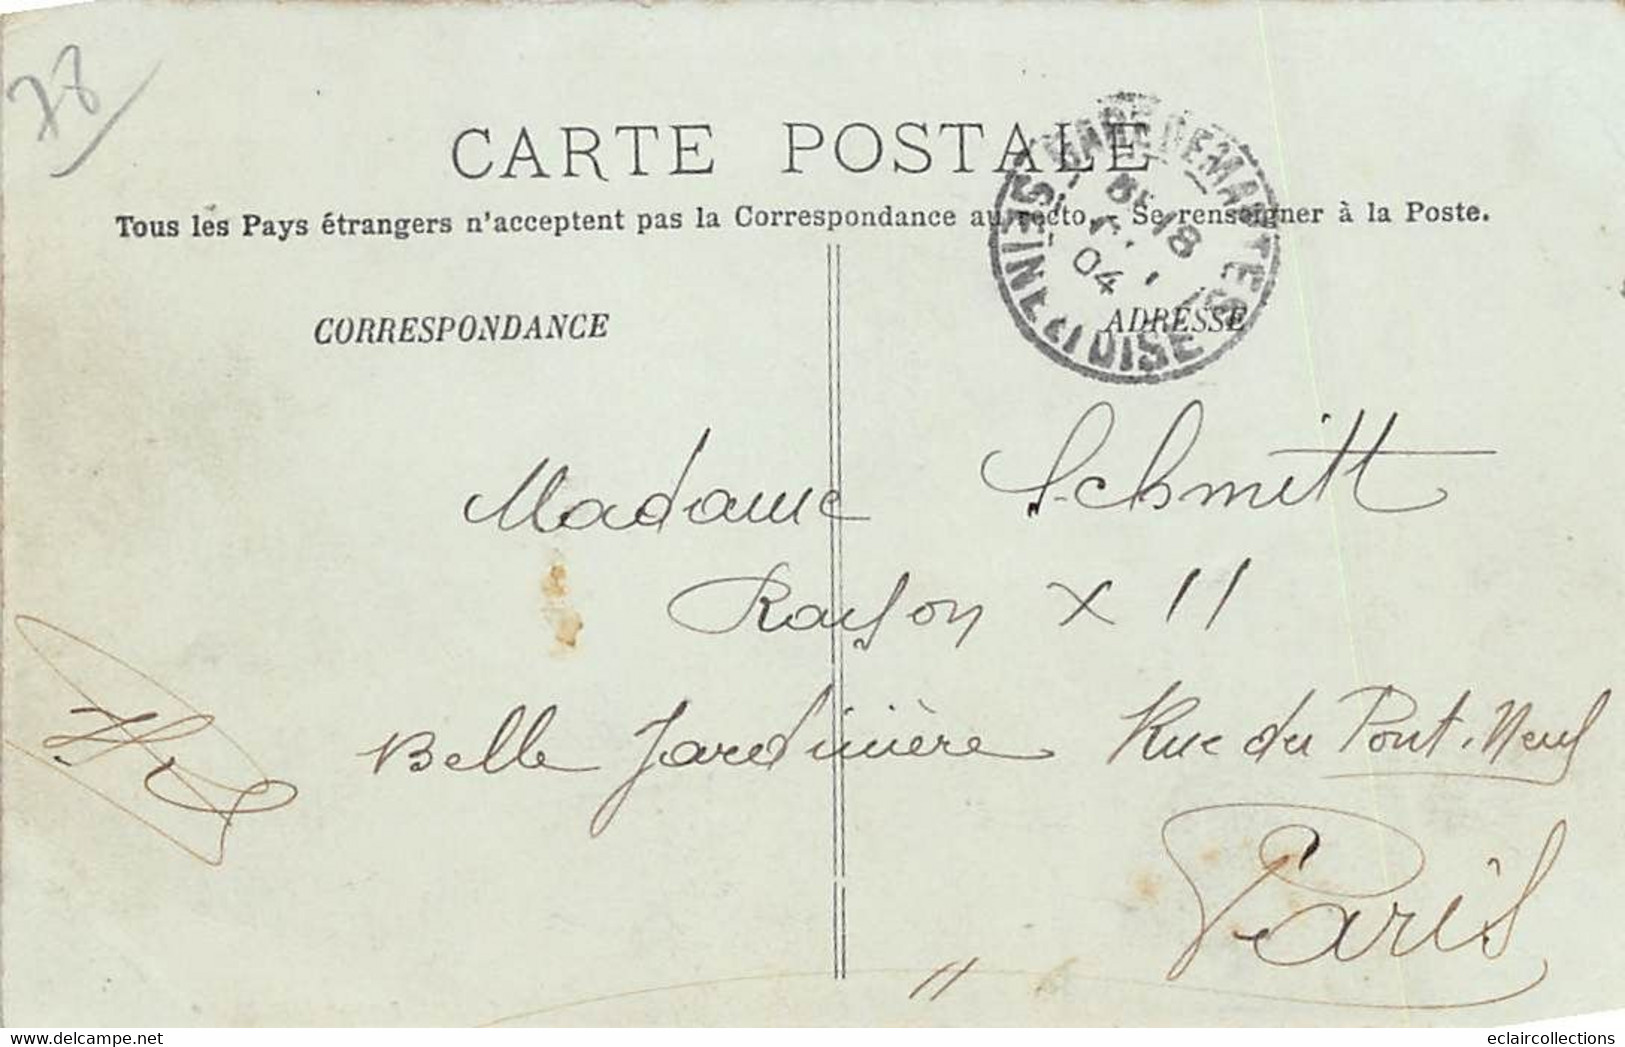 78
CARTE POSTALE
Tous les Pays étrangers n'acceptent pas la Correspondance au recto. - Se renseigner à la Poste.
CORRESPONDANCE
ADRESSE
GARE DE MANTES
18
04
SEINE ET OISE
Madame Schmitt
Rayon X 11
Belle Jardinière Rue du Pont-Neuf
Paris
eclaircollections